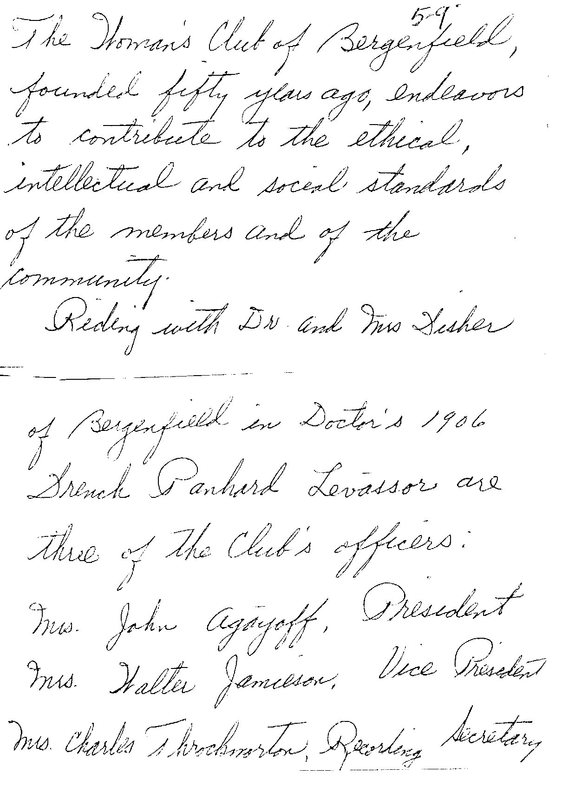 5-9
The Woman's Club of Bergenfield,
founded fifty years ago, endeavors
to contribute to the ethical,
intellectual and social standards
of the members and of the
community.
Riding with Dr. and Mrs Fisher
of Bergenfield in Doctor's 1906
French Panhard Levassor are
three of the Club's officers:
Mrs. John Agayoff, President
Mrs. Walter Jamieson, Vice President
Mrs. Charles Throckmorton, Recording Secretary